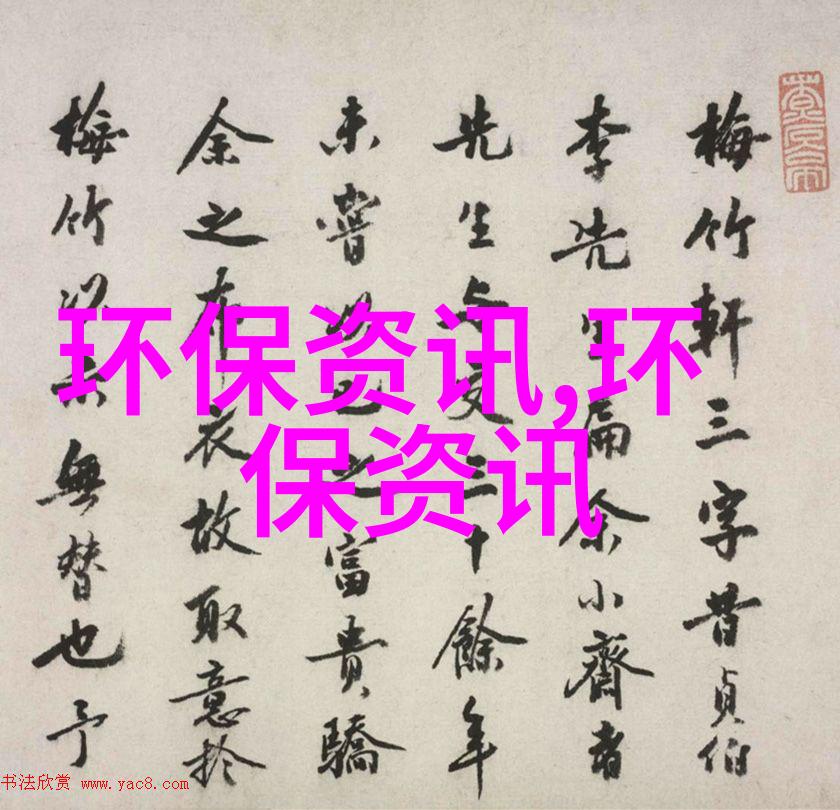 梅竹軒三字昔貞伯
李先生扁余小齋者
先生与交三十餘年
未嘗以己之富貴驕
余之布衣故取意於
梅竹無替也予
环保资讯,环
保资讯
书法欣赏 www.yac8.com